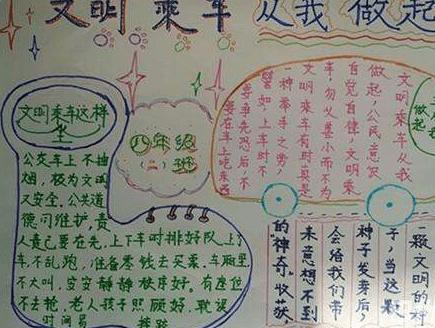 文明乘车 从我做起
文明乘车这样
公交车上不抽
烟，极为文明
又安全。公共道
德闩维护，责
人竟己要在先，上下车时排好队，上了
车不乱跑，准备零钱去买票，车厢里
不大叫，安安静静秩序好。有座位
不去抢，老人孩子照顾好，耽误
时间易
四年级
文明乘车从我
做起，公民意识
自觉自律，文明乘
车，勿以善小而不为
文明乘车有时只是
一种举手之劳，
譬如，上车时不
要争先恐后，不
要在车上吃东西
一颗文明的种
子，当这颗
种子发芽后，
会给我们带
来意想不到
的“神奇”收获